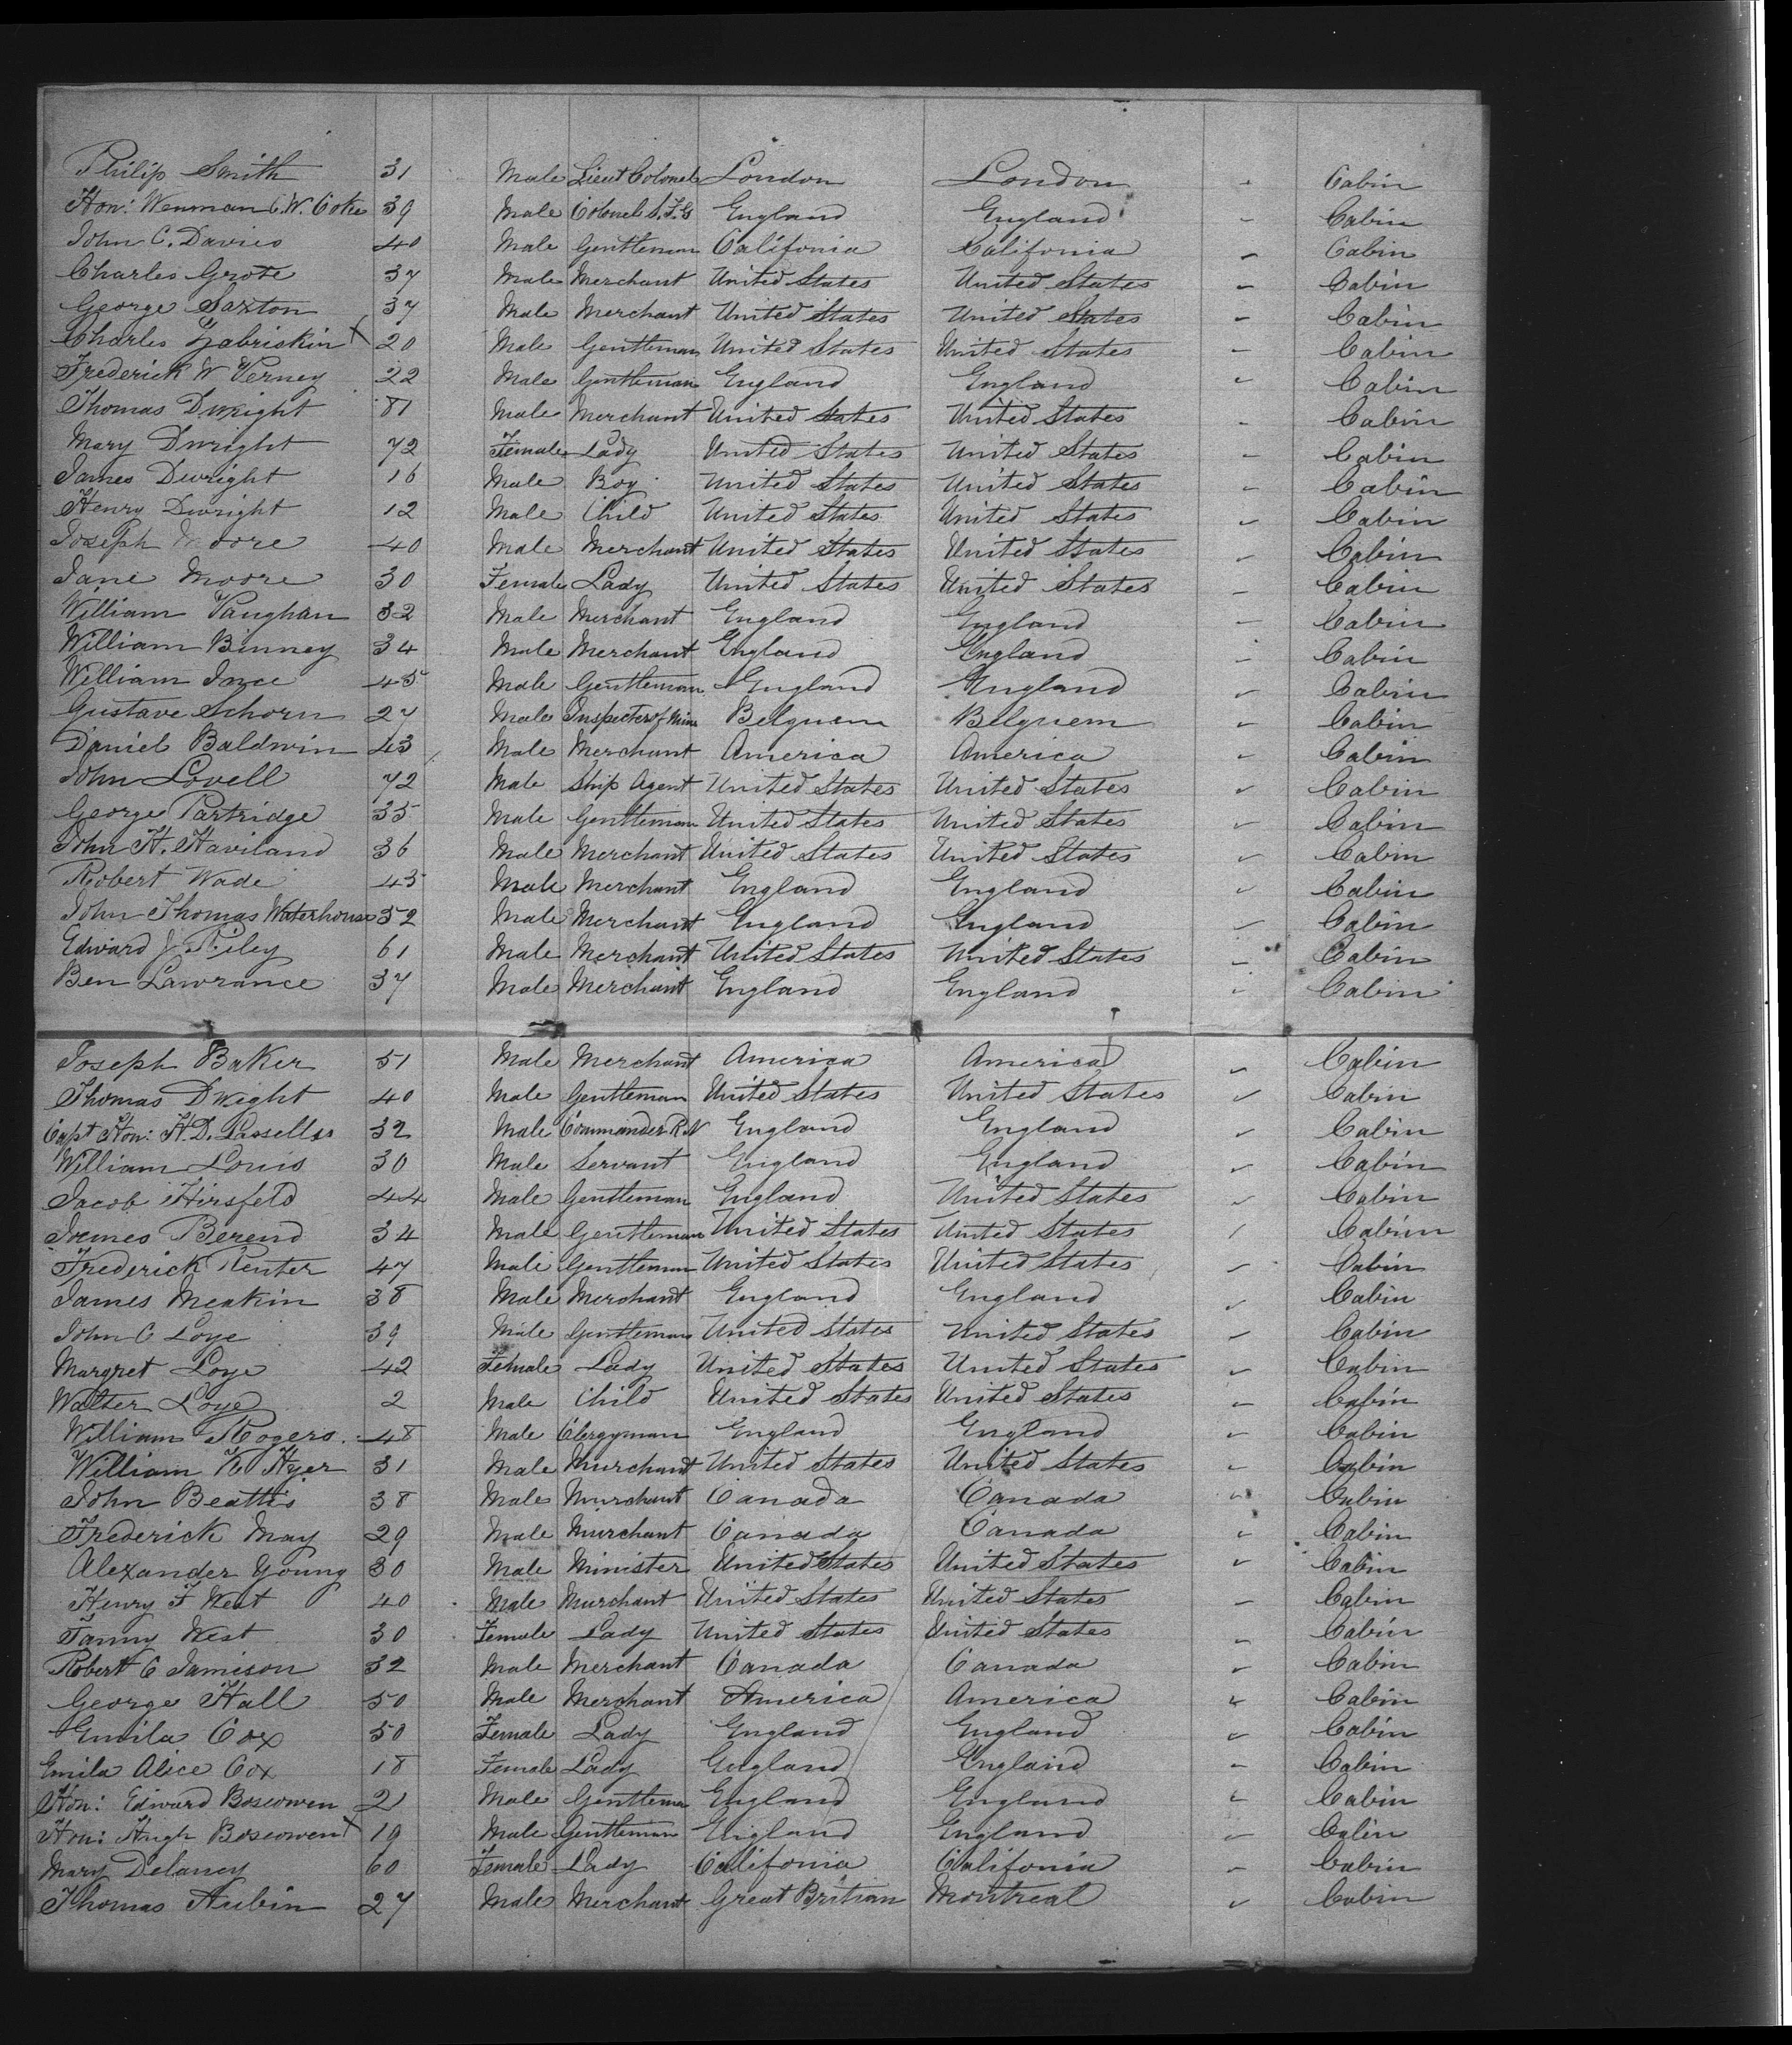 Philip Smith 31 Male Lieut Colonel London London - Cabin
Hon: Wenman C.W. Coke 39 Male Colonel S.F.G England England - Cabin
John C. Davies 40 Male Gentleman Califonia Califonia - Cabin
Charles Grote 37 Male Merchant United States United States - Cabin
George Saxton 37 Male Merchant United States United States - Cabin
Charles Zabriskin X 20 Male Gentleman United States United States - Cabin
Frederick W Verney 22 Male Gentleman England England - Cabin
Thomas Dwight 81 Male Merchant United States United States - Cabin
Mary Dwright 72 Female Lady United States United States - Cabin
James Dwright 16 Male Boy United States United States - Cabin
Henry Dwright 12 Male Child United States United States - Cabin
Joseph Moore 40 Male Merchant United States United States - Cabin
Jane Moore 30 Female Lady United States United States - Cabin
William Vaughan 32 Male Merchant England England - Cabin
William Binney 34 Male Merchant England England - Cabin
William Ince 45 Male Gentleman England England - Cabin
Gustave Schorn 27 Male Inspector of Mine Belguem Belguem - Cabin
Daniel Baldwin 43 Male Merchant America America - Cabin
John Lovell 72 Male Ship Agent United States United States - Cabin
George Partridge 35 Male Gentleman United States United States - Cabin
John H. Haviland 36 Male Merchant United States United States - Cabin
Robert Wade 45 Male Merchant England England - Cabin
John Thomas Waterhouse 52 Male Merchant England England - Cabin
Edward J. Riley 61 Male Merchant United States United States - Cabin
Ben Lawrance 37 Male Merchant England England - Cabin
Joseph Baker 51 Male Merchant America America - Cabin
Thomas Dwight 40 Male Gentleman United States United States - Cabin
Capt Hon: H.D. Lassells 32 Male Commander R.N England England - Cabin
William Louis 30 Male Servant England England - Cabin
Jacob Hirsfeld 44 Male Gentleman England United States - Cabin
James Berend 34 Male Gentleman United States United States - Cabin
Frederick Renter 47 Male Gentleman United States United States - Cabin
James Meakin 38 Male Merchant England England - Cabin
John C Loye 39 Male Gentleman United States United States - Cabin
Margret Loye 42 Female Lady United States United States - Cabin
Walter Loye 2 Male Child United States United States - Cabin
William Rogers 48 Male Clergyman England England - Cabin
William K Hyer 31 Male Murchant United States United States - Cabin
John Beattis 38 Male Murchant Canada Canada - Cabin
Frederick May 29 Male Murchant Canada Canada - Cabin
Alexander Young 30 Male Minister United States United States - Cabin
Henry F West 40 Male Murchant United States United States - Cabin
Fanny West 30 Female Lady United States United States - Cabin
Robert C Jamison 32 Male Merchant Canada Canada - Cabin
George Hall 50 Male Merchant America America - Cabin
Emila Cox 50 Female Lady England England - Cabin
Emila Alice Cox 18 Female Lady England England - Cabin
Hon: Edward Boscowen 21 Male Gentleman England England - Cabin
Hon: Hugh Boscowen X 19 Male Gentleman England England - Cabin
Mary Delaney 60 Female Lady Califonia Califonia - Cabin
Thomas Aubin 27 Male Merchant Great Britian Montreal - Cabin